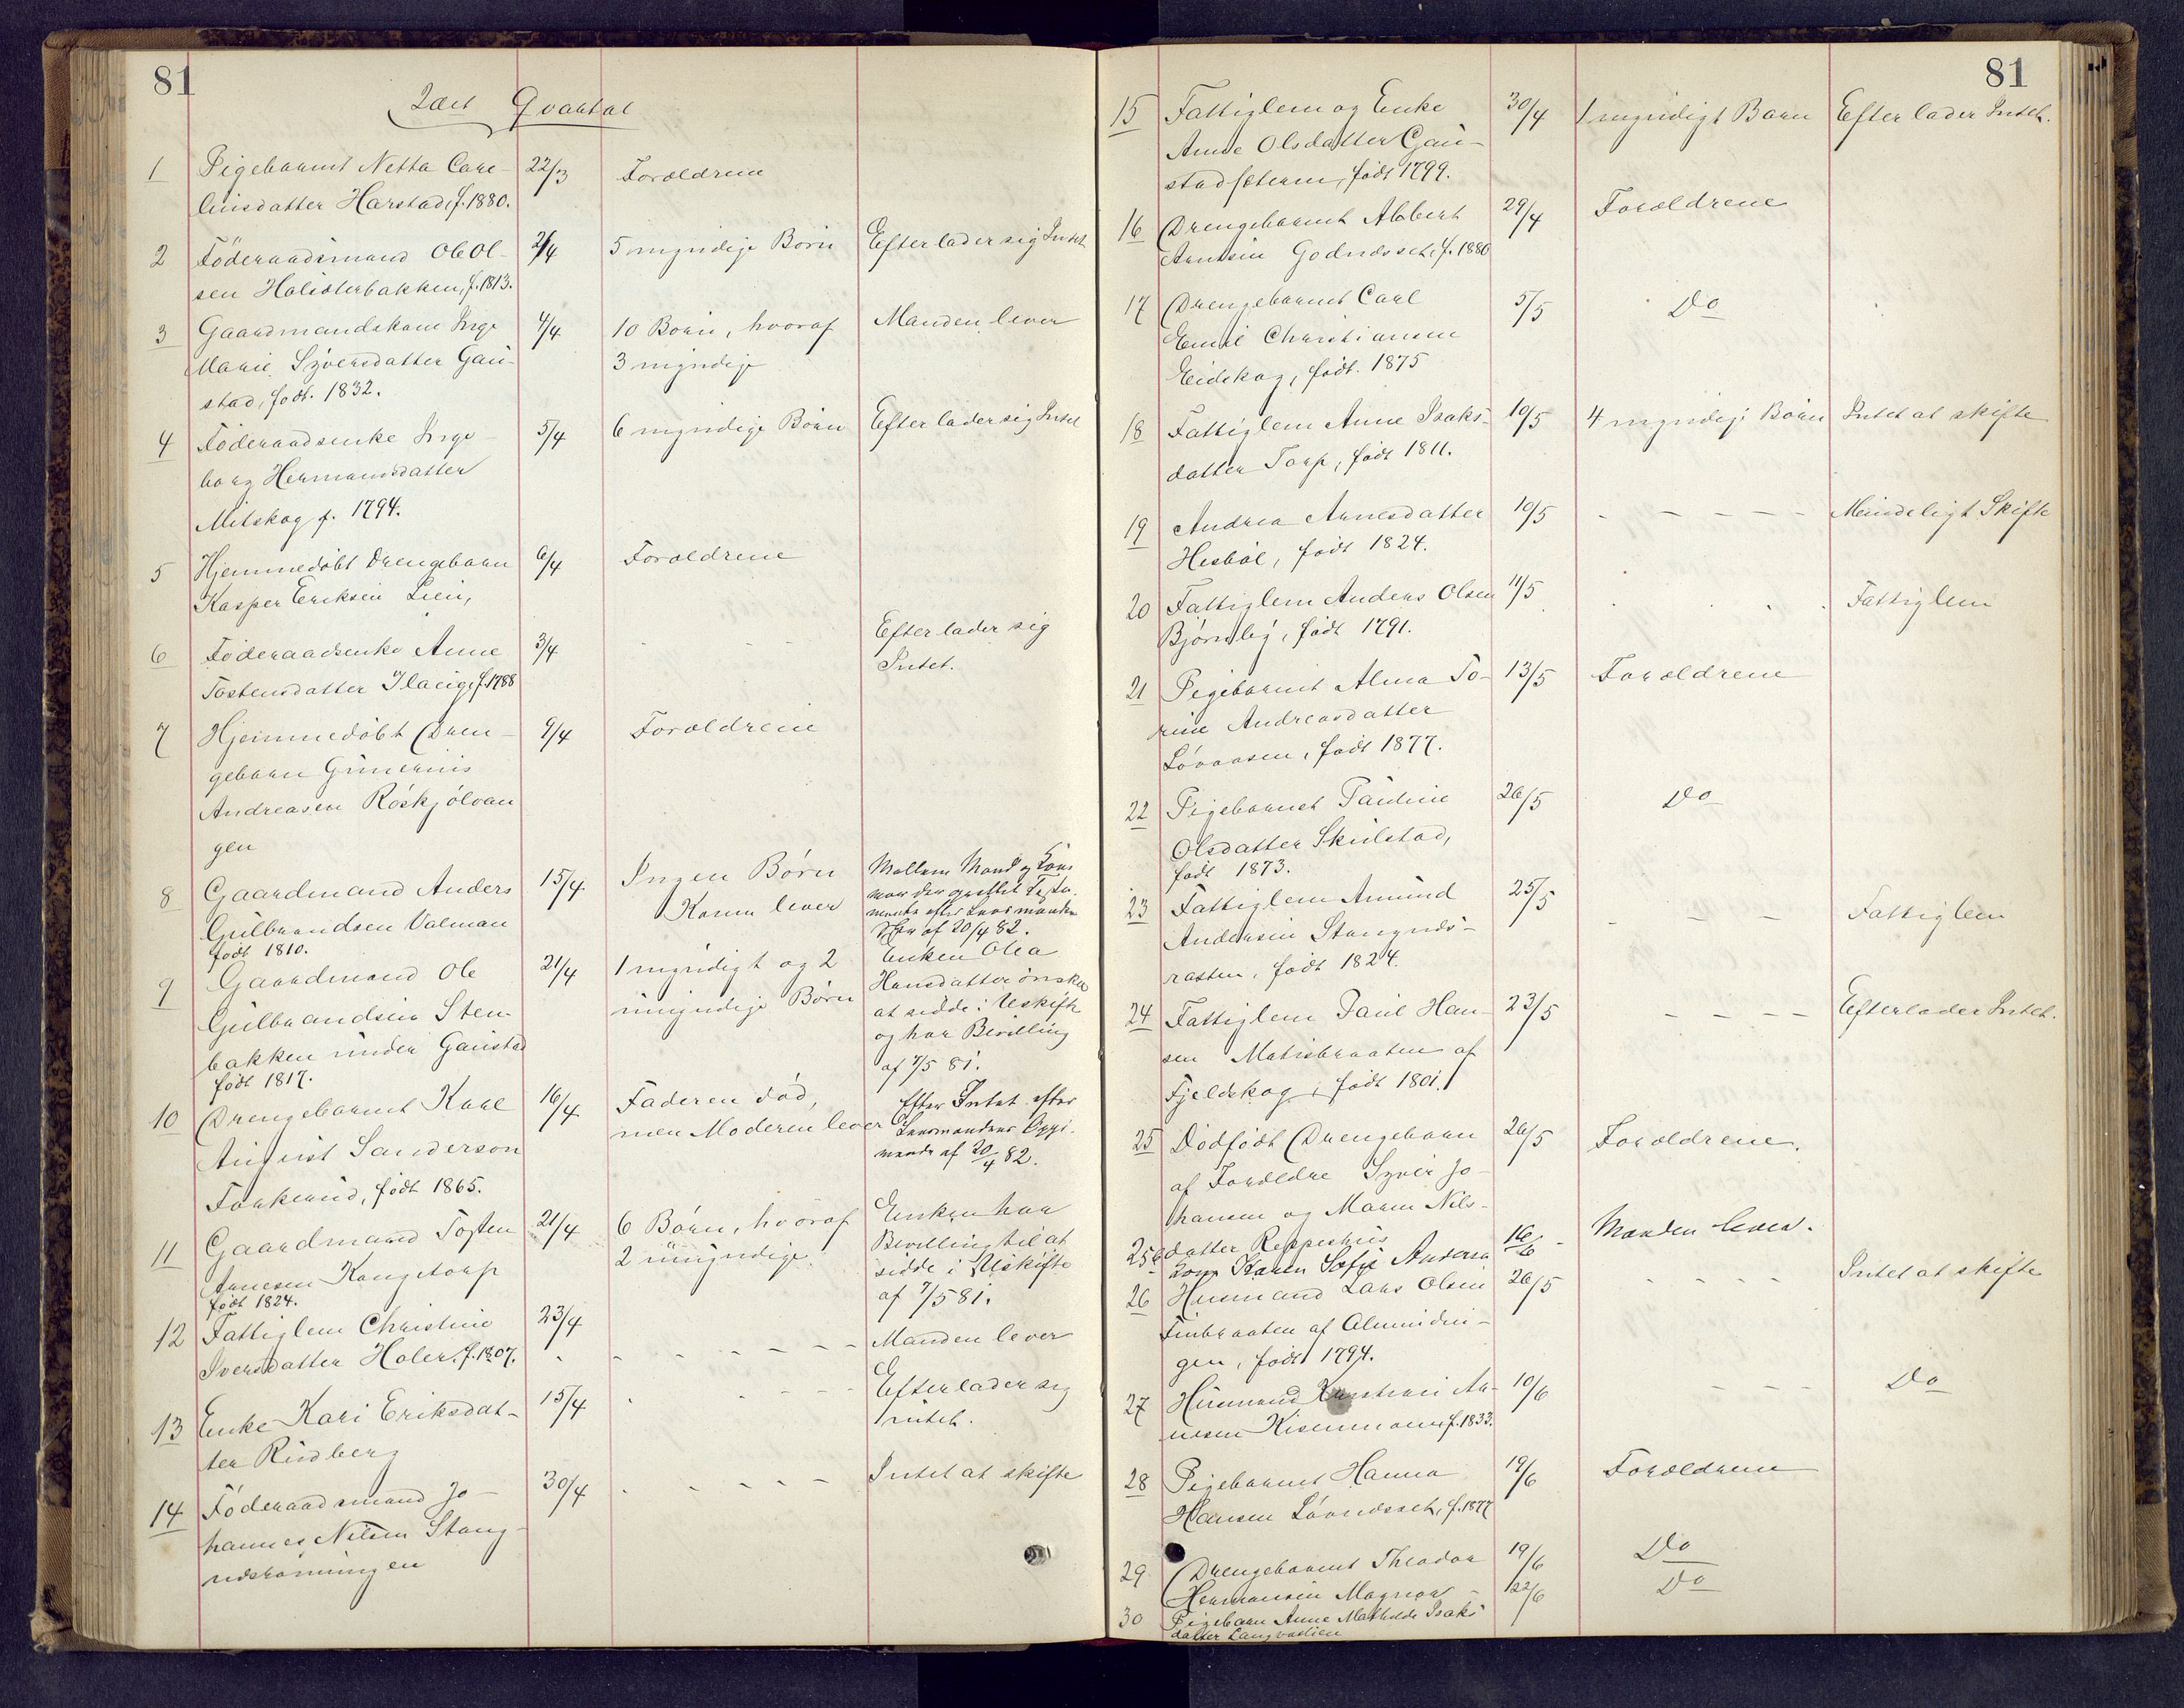 81
2det Qvartal
1 Pigebarnet Netta Care- 22/3 Forældrene
linsdatter Harstad, f. 1880.
2 Föderaadsmand Ole Ol- 2/4 5 myndige Börn Efterlader sig Intet
sen Holisterbakken, f. 1813.
3 Gaardmandskone Inge 4/4 10 Börn, hvoraf Manden lever
Marie Syversdatter Gau- 3 myndige
stad, født. 1832.
4 Föderaadsenke Inge- 5/4 6 myndige Börn Efterlader sig Intet
borg Hermansdatter
Mitskog f. 1794.
5 Hjemmedöbt Drengebarn 6/4 Forældrene
Kasper Eriksen Lien,
6 Föderaadsenke Anne 3/4 - - Efterlader sig
Tostensdatter Ilaug, f. 1788 Intet.
7 Hjemmedöbt Dren- 9/4 Forældrene
gebarn Gunerius
Andreasen Röskjölvan
gen
8 Gaardmand Anders 15/4. Ingen Börn Mellem Mand og Kone
Gulbrandsen Valman Konen lever var der oprettet Testa-
født 1810. mente efter Lensmanden
af 20/4 82.
9 Gaardmand Ole 21/4 1 myndigt og 2 Enken Olea
Gulbrandsen Sten- umyndige Börn Hansdatter önsker
bakken under Gaustad at sidde i Uskifte
født 1817. og har Bevilling
af 7/5 81.
10 Drengebarnet Karl 16/4 Faderen död, Efter Intet efter
August Sanderson men Moderen lever Lensmandens Oppi-
Forkerud, født 1865. af 20/4 82.
11 Gaardmand Tosten 21/4 6 Börn, hvoraf Enken har
Arnesen Kongetorp 2 umyndige. Bevilling til at
født 1824. sidde i Uskifte
af 7/5 81.
12 Fattiglem Christine 23/4
Iversdatter Holer. f. 1807. - - - - - - Manden lever
13 Enke Kari Eriksdat- 15/4 - - - Efterlader sig
ter Rindberg Intet.
14 Föderaadsmand Jo- 30/4 - - - - - Intet at skifte
hannes Nilsen Stang-
ndsröningen
81
15 Fattiglem og Enke 30/4 1 myndigt Barn Efterlader Intet.
Anne Olsdatter Gau-
stadsætern, født 1799.
16 Drengebarnet Albert 29/4 Forældrene
Arntsen Godnæsset, f. 1880
17 Drengebarnet Carl 5/5 Do
Emil Christiansen
Eidskog, født. 1875
18 Fattiglem Anne Isaks- 10/5 4 myndige Börn Intet at skifte
datter Torp, født 1811.
19 Andrea Arnesdatter 10/5 - - - - - Mindeligt Skifte
Hesböl, født 1824.
20 Fattiglem Anders Olsen 11/5 Fattiglem
Björnby, født 1791.
21 Pigebarnet Alma To- 13/5 Forældrene
rine Andreasdatter
Lövaasen, født 1877.
22 Pigebarnet Pauline 26/5 Do
Olsdatter Skulstad,
født 1873.
23 Fattiglem Amund 25/5 - - - Fattiglem
Andersen Stangnds-
rasten, født 1824.
24 Fattiglem Paul Han- 23/5 - - - - Efterlader Intet.
sen Matisbraaten af
Fjeldskog, født 1801.
25 Dödfödt Drengebarn 26/5 Forældrene.
af Forældre Syver Jo-
hansen og Maren Nils-
datter Reppeshus
25b Kone Karen Sofie Andersen 16/6 - Manden lever.
26 Huusmand Lars Olsen 26/5 - - - - Intet at skifte
Finbraaten af Almindin-
gen, født 1794.
27 Husmand Kristian Ar- 10/6 - - - Do
nesen Kisenmoen, f. 1833.
28 Pigebarnet Hanna 19/6 Forældrene
Hansen Lövnæsset, f. 1877
29 Drengebarnet Theodor 19/6 Do
Hermansen Magnor
30 Pigebarn Anne Mathilde Isaks 22/6 Do
datter Langvaslien